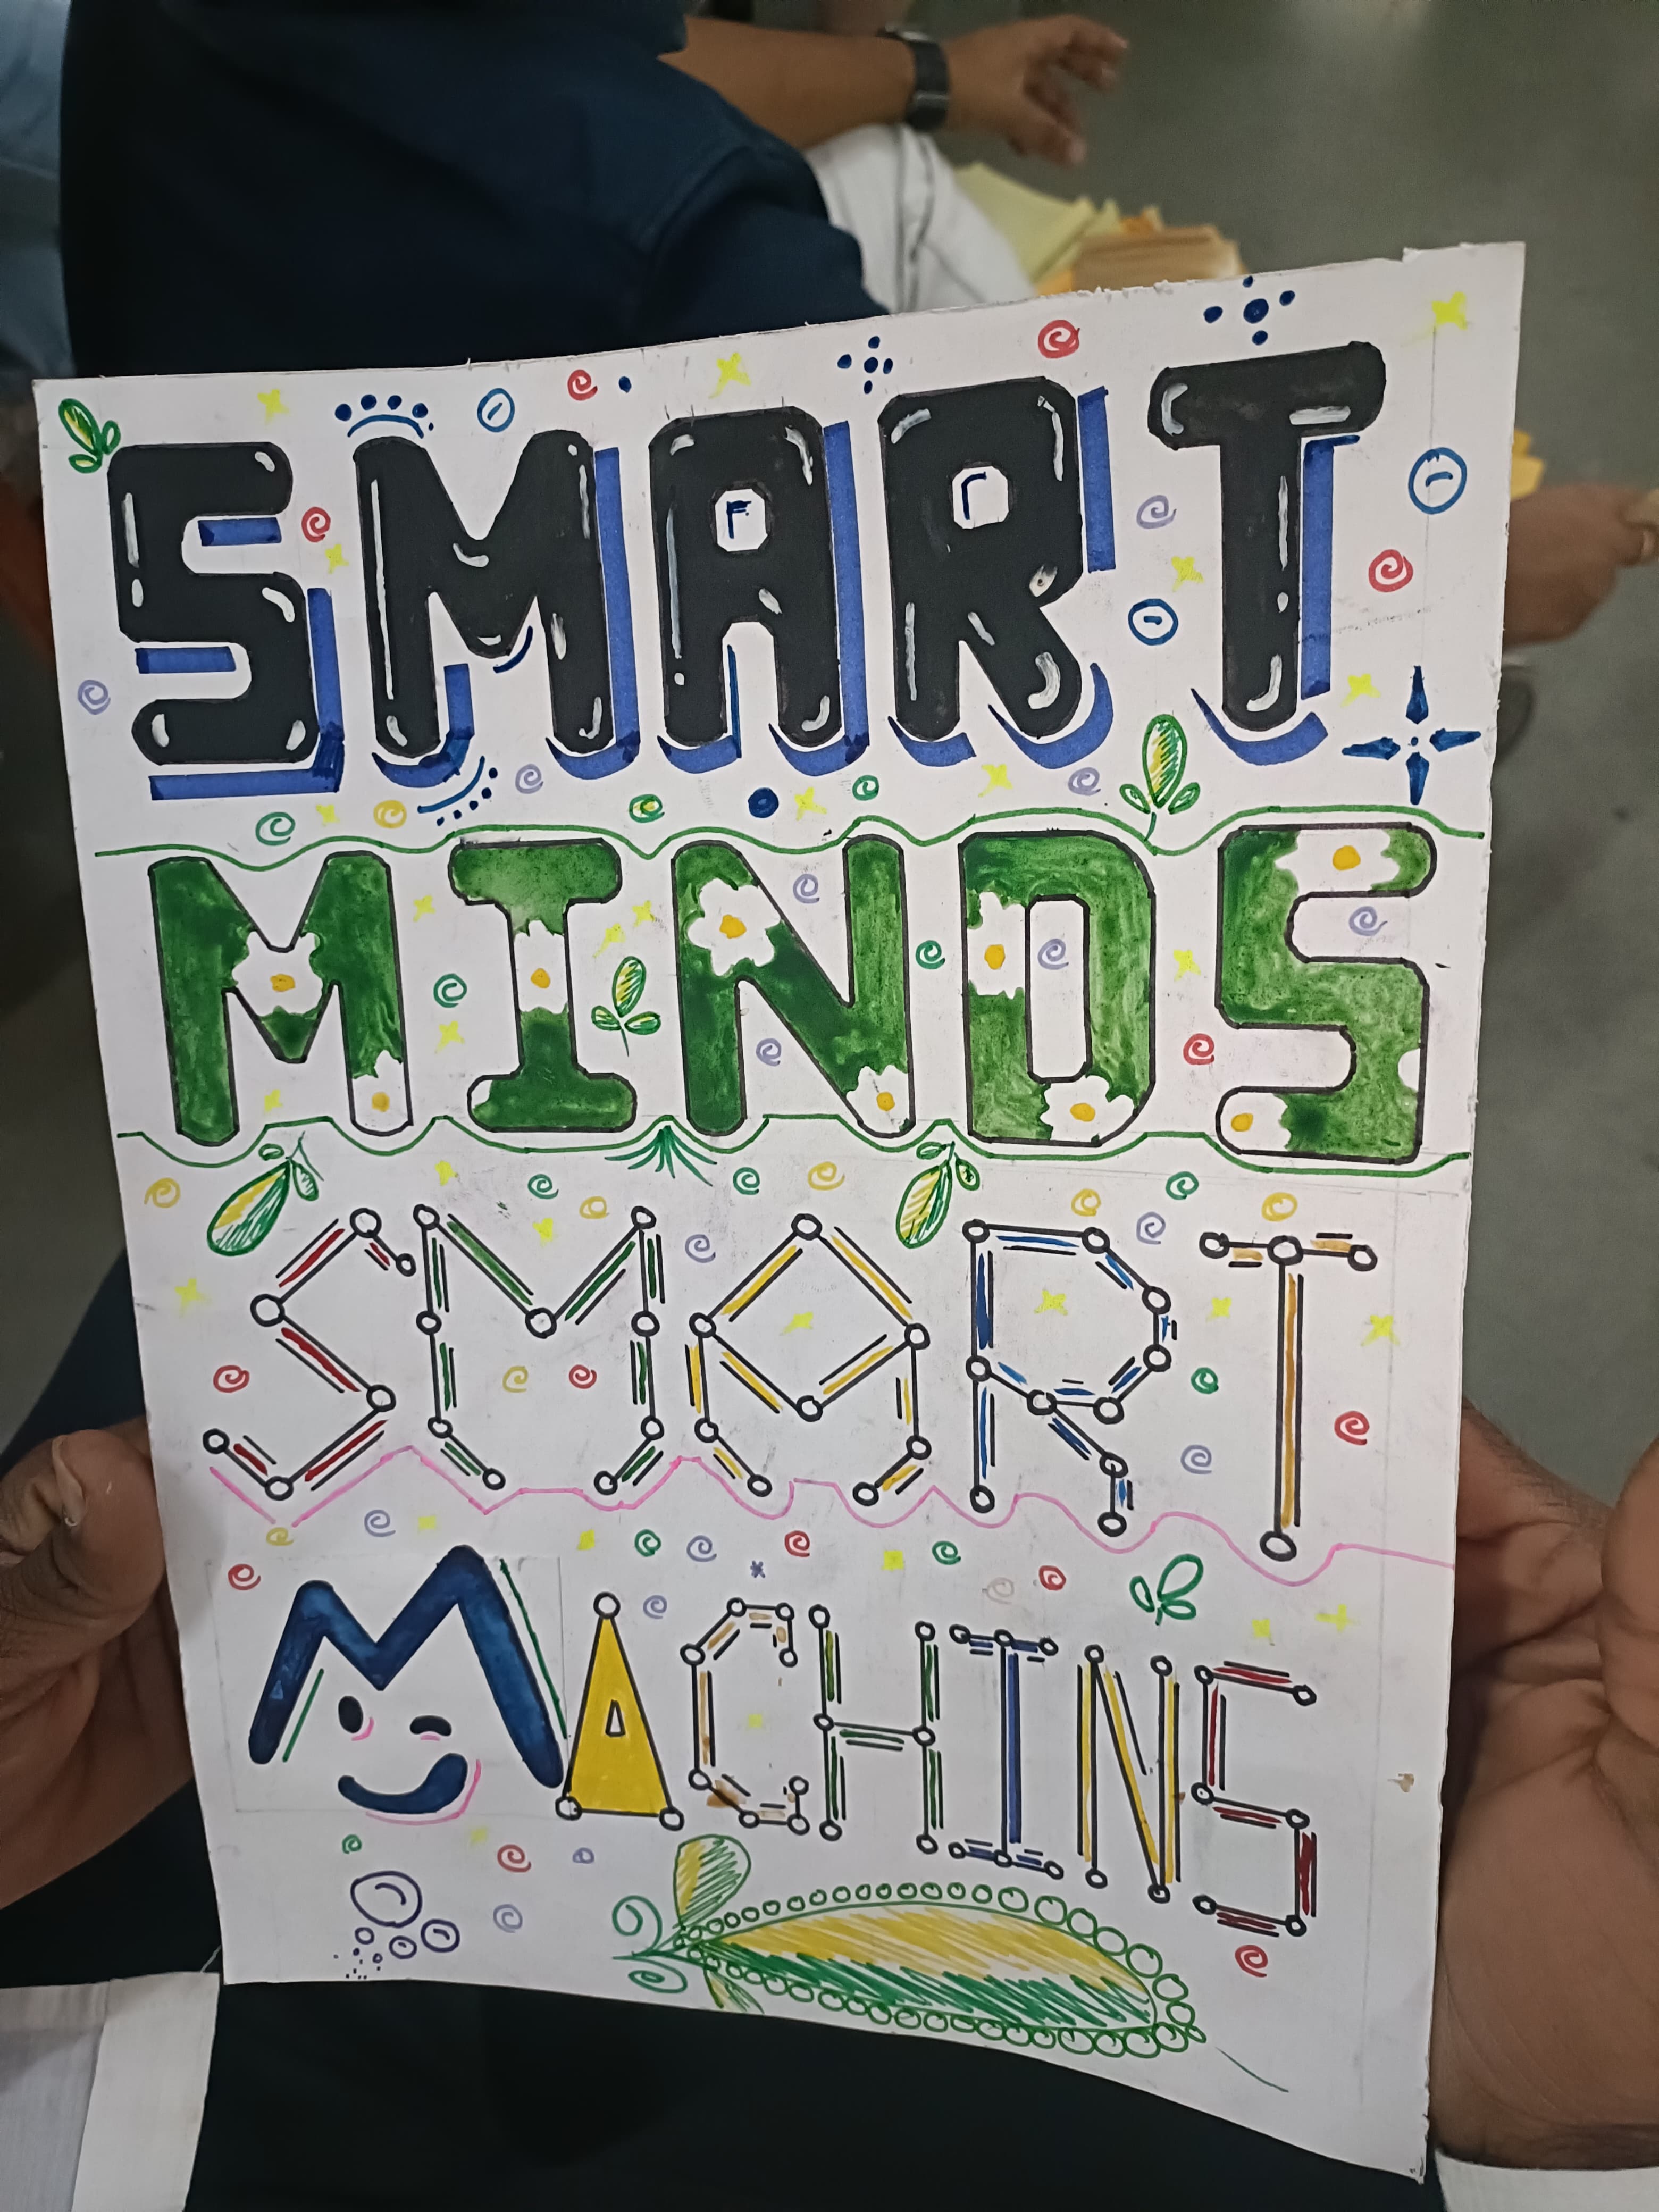 SMART
MINDS
SMART
MACHINS